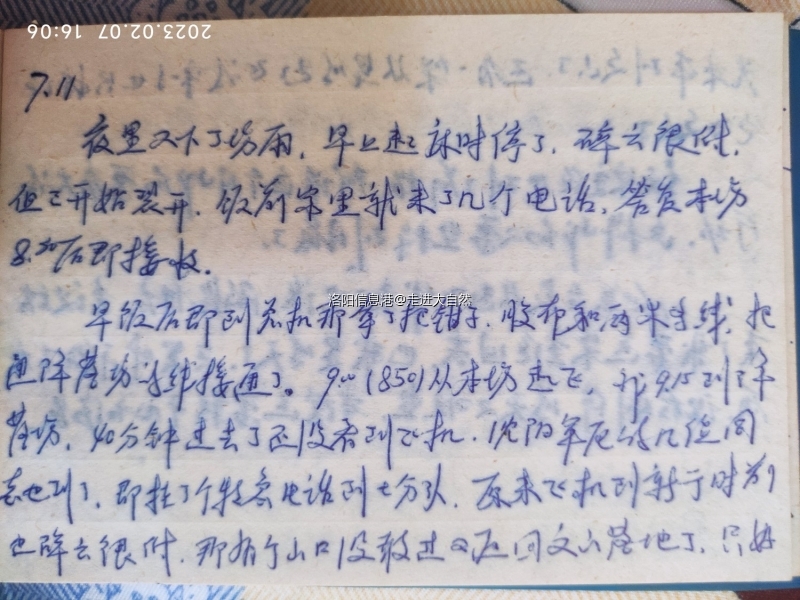 2023.02.07 16:06
7.11
夜里又下了场雨，早上起床时停了，碎云很低，
但已开始裂开，饭前家里就来了几个电话，答复本场
8.30后即接收。
早饭后即到 机那拿了把钳子，胶布和两米多线，把
通降落场 线接通了。9.00(850)从本场起飞，9.15到降
落场，40分钟过去了还没看到飞机，沈阳军区 几位同
志也到了，即挂了个特急电话到七分队，原来飞机到 时
也碎云很低，那有个山口没敢过又返回文山落地了，只好
洛阳信息港@走进大自然